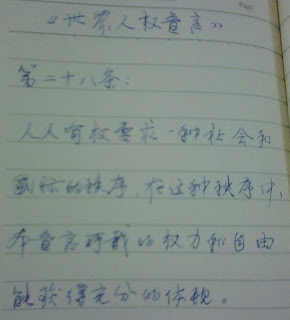 《世界人权宣言》
第二十八条：
人人有权要求一种社会和
国际的秩序，在这种秩序中，
本宣言所载的权力和自由
能获得充分的体现。